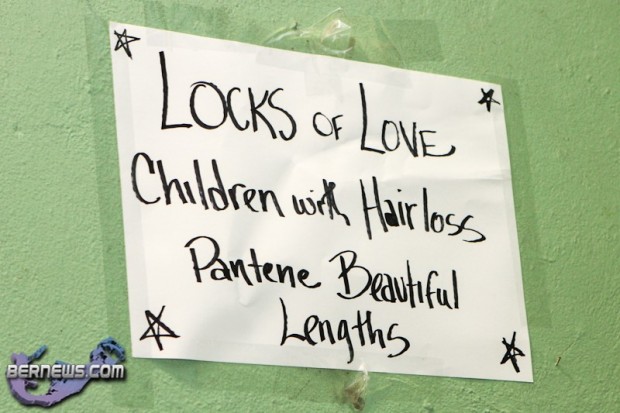 LOCKS OF LOVE
Children with Hairloss
Pantene Beautiful
Lengths
BERNEWS.COM